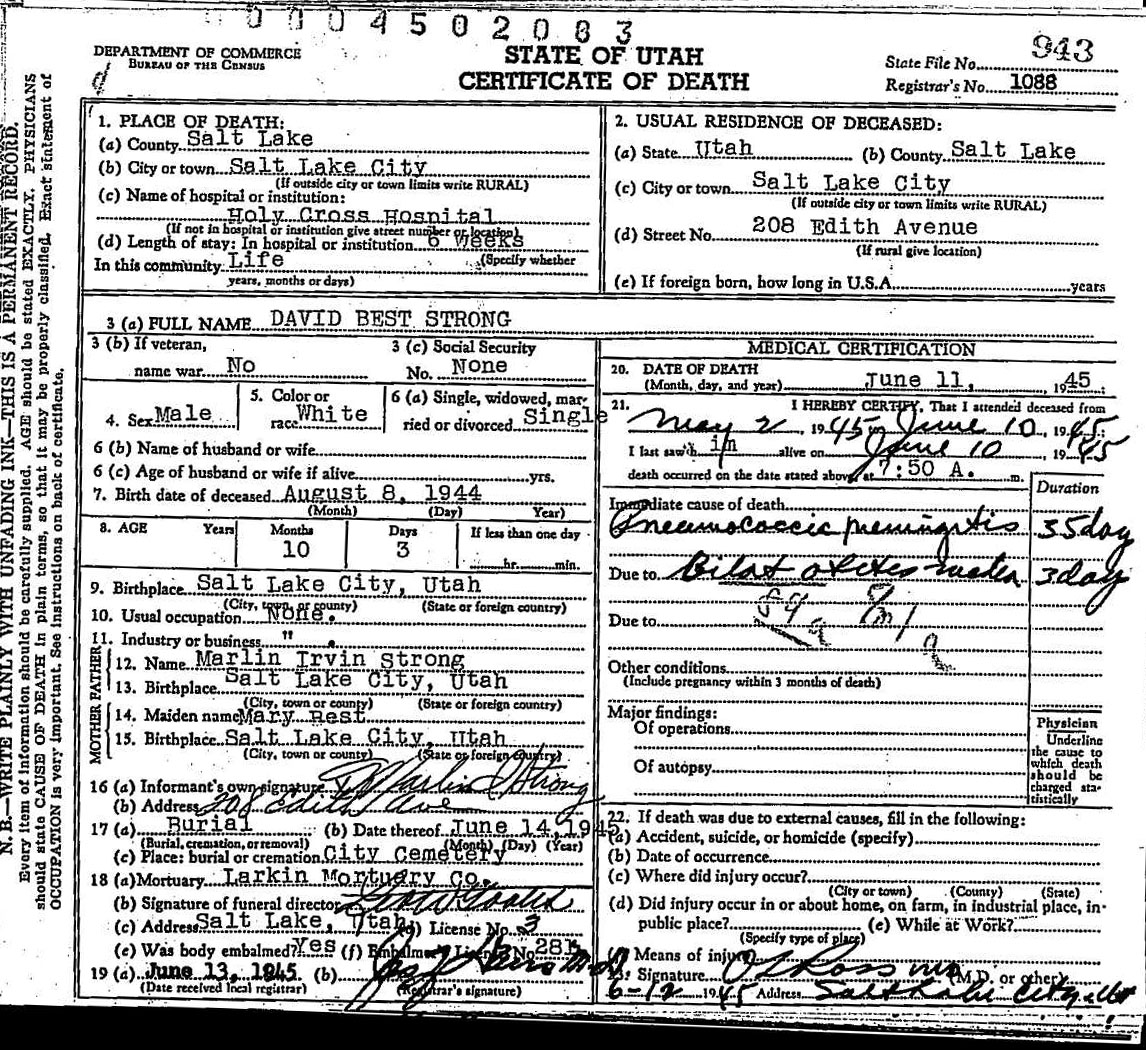 0004502083
DEPARTMENT OF COMMERCE
BUREAU OF THE CENSUS
STATE OF UTAH
CERTIFICATE OF DEATH
State File No. 943
Registrar's No. 1088
N. B.—WRITE PLAINLY WITH UNFADING INK—THIS IS A PERMANENT RECORD.
Every item of information should be carefully supplied. AGE should be stated EXACTLY. PHYSICIANS
should state CAUSE OF DEATH in plain terms, so that it may be properly classified. Exact statement of
OCCUPATION is very important. See instructions on back of certificate.
1. PLACE OF DEATH:
(a) County Salt Lake
(b) City or town Salt Lake City
(If outside city or town limits write RURAL)
(c) Name of hospital or institution:
Holy Cross Hospital
(If not in hospital or institution give street number or location)
(d) Length of stay: In hospital or institution 6 Weeks
In this community Life (Specify whether
years, months or days)
2. USUAL RESIDENCE OF DECEASED:
(a) State Utah (b) County Salt Lake
(c) City or town Salt Lake City
(If outside city or town limits write RURAL)
(d) Street No. 208 Edith Avenue
(If rural give location)
(e) If foreign born, how long in U.S.A. years
3 (a) FULL NAME DAVID BEST STRONG
3 (b) If veteran, 3 (c) Social Security
name war No No. None
4. Sex Male
5. Color or
race White
6 (a) Single, widowed, mar-
ried or divorced Single
6 (b) Name of husband or wife
6 (c) Age of husband or wife if alive yrs.
7. Birth date of deceased August 8, 1944
(Month) (Day) Year)
8. AGE Years Months Days If less than one day
10 3 hr. min.
9. Birthplace Salt Lake City, Utah
(City, town, or county) (State or foreign country)
10. Usual occupation None.
11. Industry or business " .
FATHER
12. Name Marlin Irvin Strong
13. Birthplace Salt Lake City, Utah
(City, town or county) (State or foreign country)
MOTHER
14. Maiden name Mary Best
15. Birthplace Salt Lake City, Utah
(City, town or county) (State or foreign country)
16 (a) Informant's own signature Marlin I Strong
(b) Address 208 Edith Ave
17 (a) Burial (b) Date thereof June 14, 1945
(Burial, cremation, or removal) (Month) (Day) (Year)
(c) Place: burial or cremation City Cemetery
18 (a) Mortuary Larkin Mortuary Co.
(b) Signature of funeral director
(c) Address Salt Lake, Utah (d) License No. 3
(e) Was body embalmed? Yes (f) Embalmer's License No. 281
19 (a) June 13, 1945 (b)
(Date received local registrar) (Registrar's signature)
MEDICAL CERTIFICATION
20. DATE OF DEATH
(Month, day, and year) June 11, 1945
21. I HEREBY CERTIFY, That I attended deceased from
May 2, 1945 June 10, 1945
I last saw h im alive on June 10 1945
death occurred on the date stated above, at 7:50 A. m.
Duration
Immediate cause of death
Pneumococcic meningitis 35 day
Due to Bilat otitis media 3 day
Due to
Other conditions
(Include pregnancy within 3 months of death)
Major findings:
Of operations
Of autopsy
Physician
Underline
the cause to
which death
should be
charged sta-
tistically
22. If death was due to external causes, fill in the following:
(a) Accident, suicide, or homicide (specify)
(b) Date of occurrence
(c) Where did injury occur?
(City or town) (County) (State)
(d) Did injury occur in or about home, on farm, in industrial place, in-
public place? (e) While at Work?
(Specify type of place)
Means of injury
Signature Ross MD (M.D. or other)
6-12 1945 Address Salt Lake City Utah